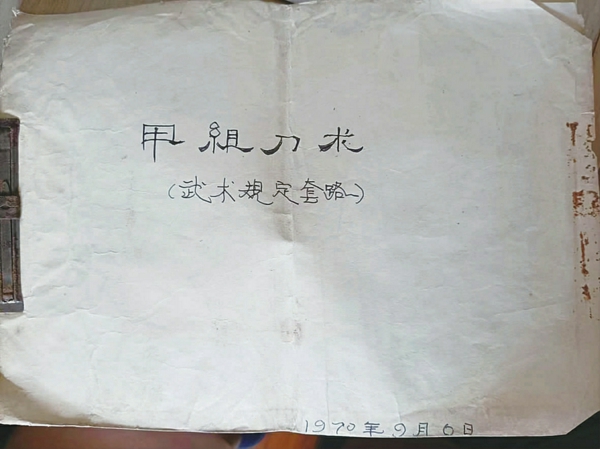 甲组刀术
(武术规定套路一)
1970年9月6日